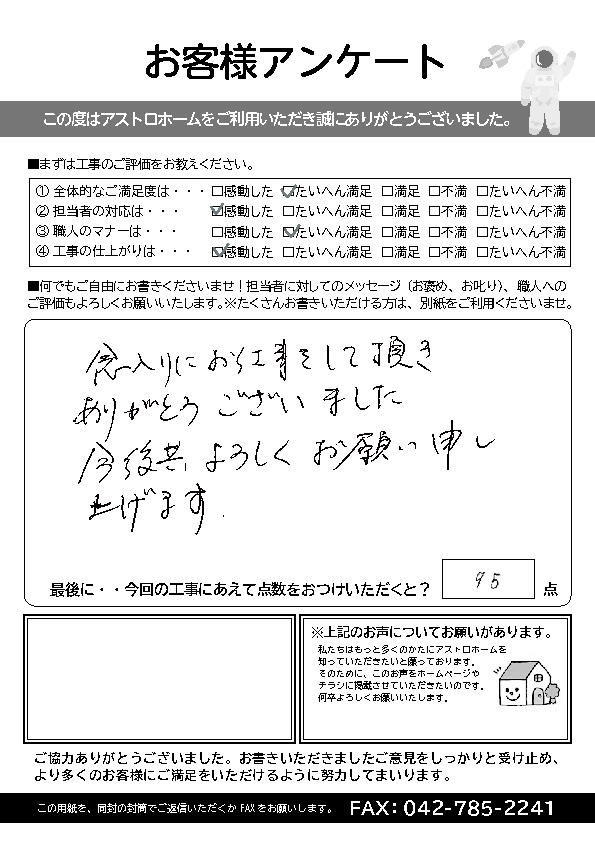 お客様アンケート
この度はアストロホームをご利用いただき誠にありがとうございました。
■まずは工事のご評価をお教えください。
① 全体的なご満足度は・・・ □感動した ☑たいへん満足 □満足 □不満 □たいへん不満
② 担当者の対応は・・・ ☑感動した □たいへん満足 □満足 □不満 □たいへん不満
③ 職人のマナーは・・・ □感動した ☑たいへん満足 □満足 □不満 □たいへん不満
④ 工事の仕上がりは・・・ ☑感動した □たいへん満足 □満足 □不満 □たいへん不満
■何でもご自由にお書きくださいませ！担当者に対してのメッセージ（お褒め、お叱り）、職人への
ご評価もよろしくお願いいたします。※たくさんお書きいただける方は、別紙をご利用くださいませ。
念入りにお仕事をして頂き
ありがとうございました
今後共よろしくお願い申し
上げます.
最後に・・今回の工事にあえて点数をおつけいただくと？ 95 点
※上記のお声についてお願いがあります。
私たちはもっと多くのかたにアストロホームを
知っていただきたいと願っております。
そのために、このお声をホームページや
チラシに掲載させていただきたいのです。
何卒よろしくお願いいたします。
ご協力ありがとうございました。お書きいただきましたご意見をしっかりと受け止め、
より多くのお客様にご満足をいただけるように努力してまいります。
この用紙を、同封の封筒でご返信いただくか FAX をお願いします。 FAX：042-785-2241